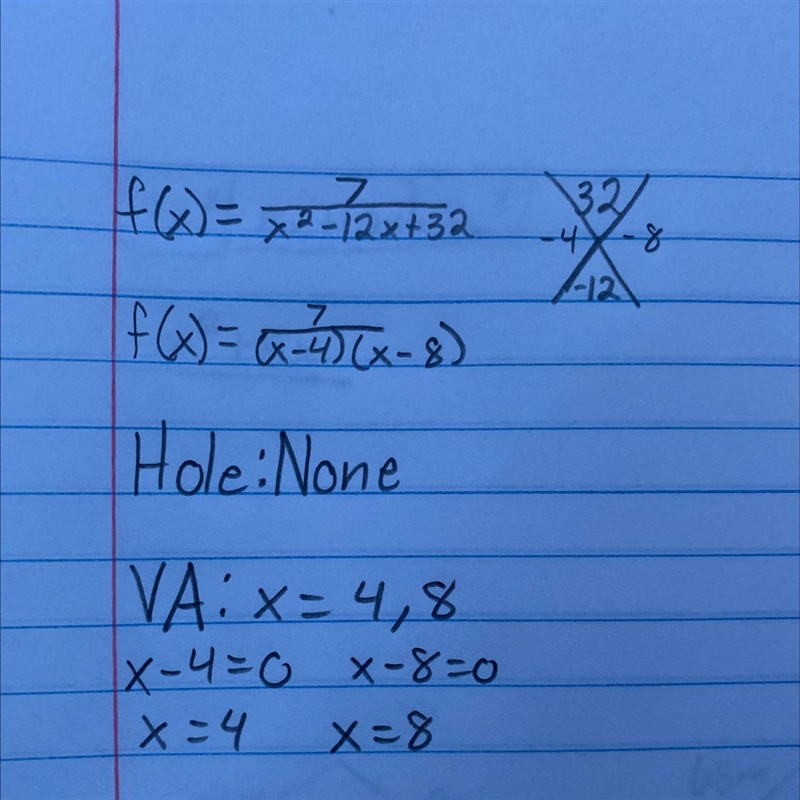 f(x) = 7/(x² - 12x + 32)
32
-4 -8
-12
f(x) = 7/((x-4)(x-8))
Hole: None
VA: x = 4, 8
x - 4 = 0 x - 8 = 0
x = 4 x = 8